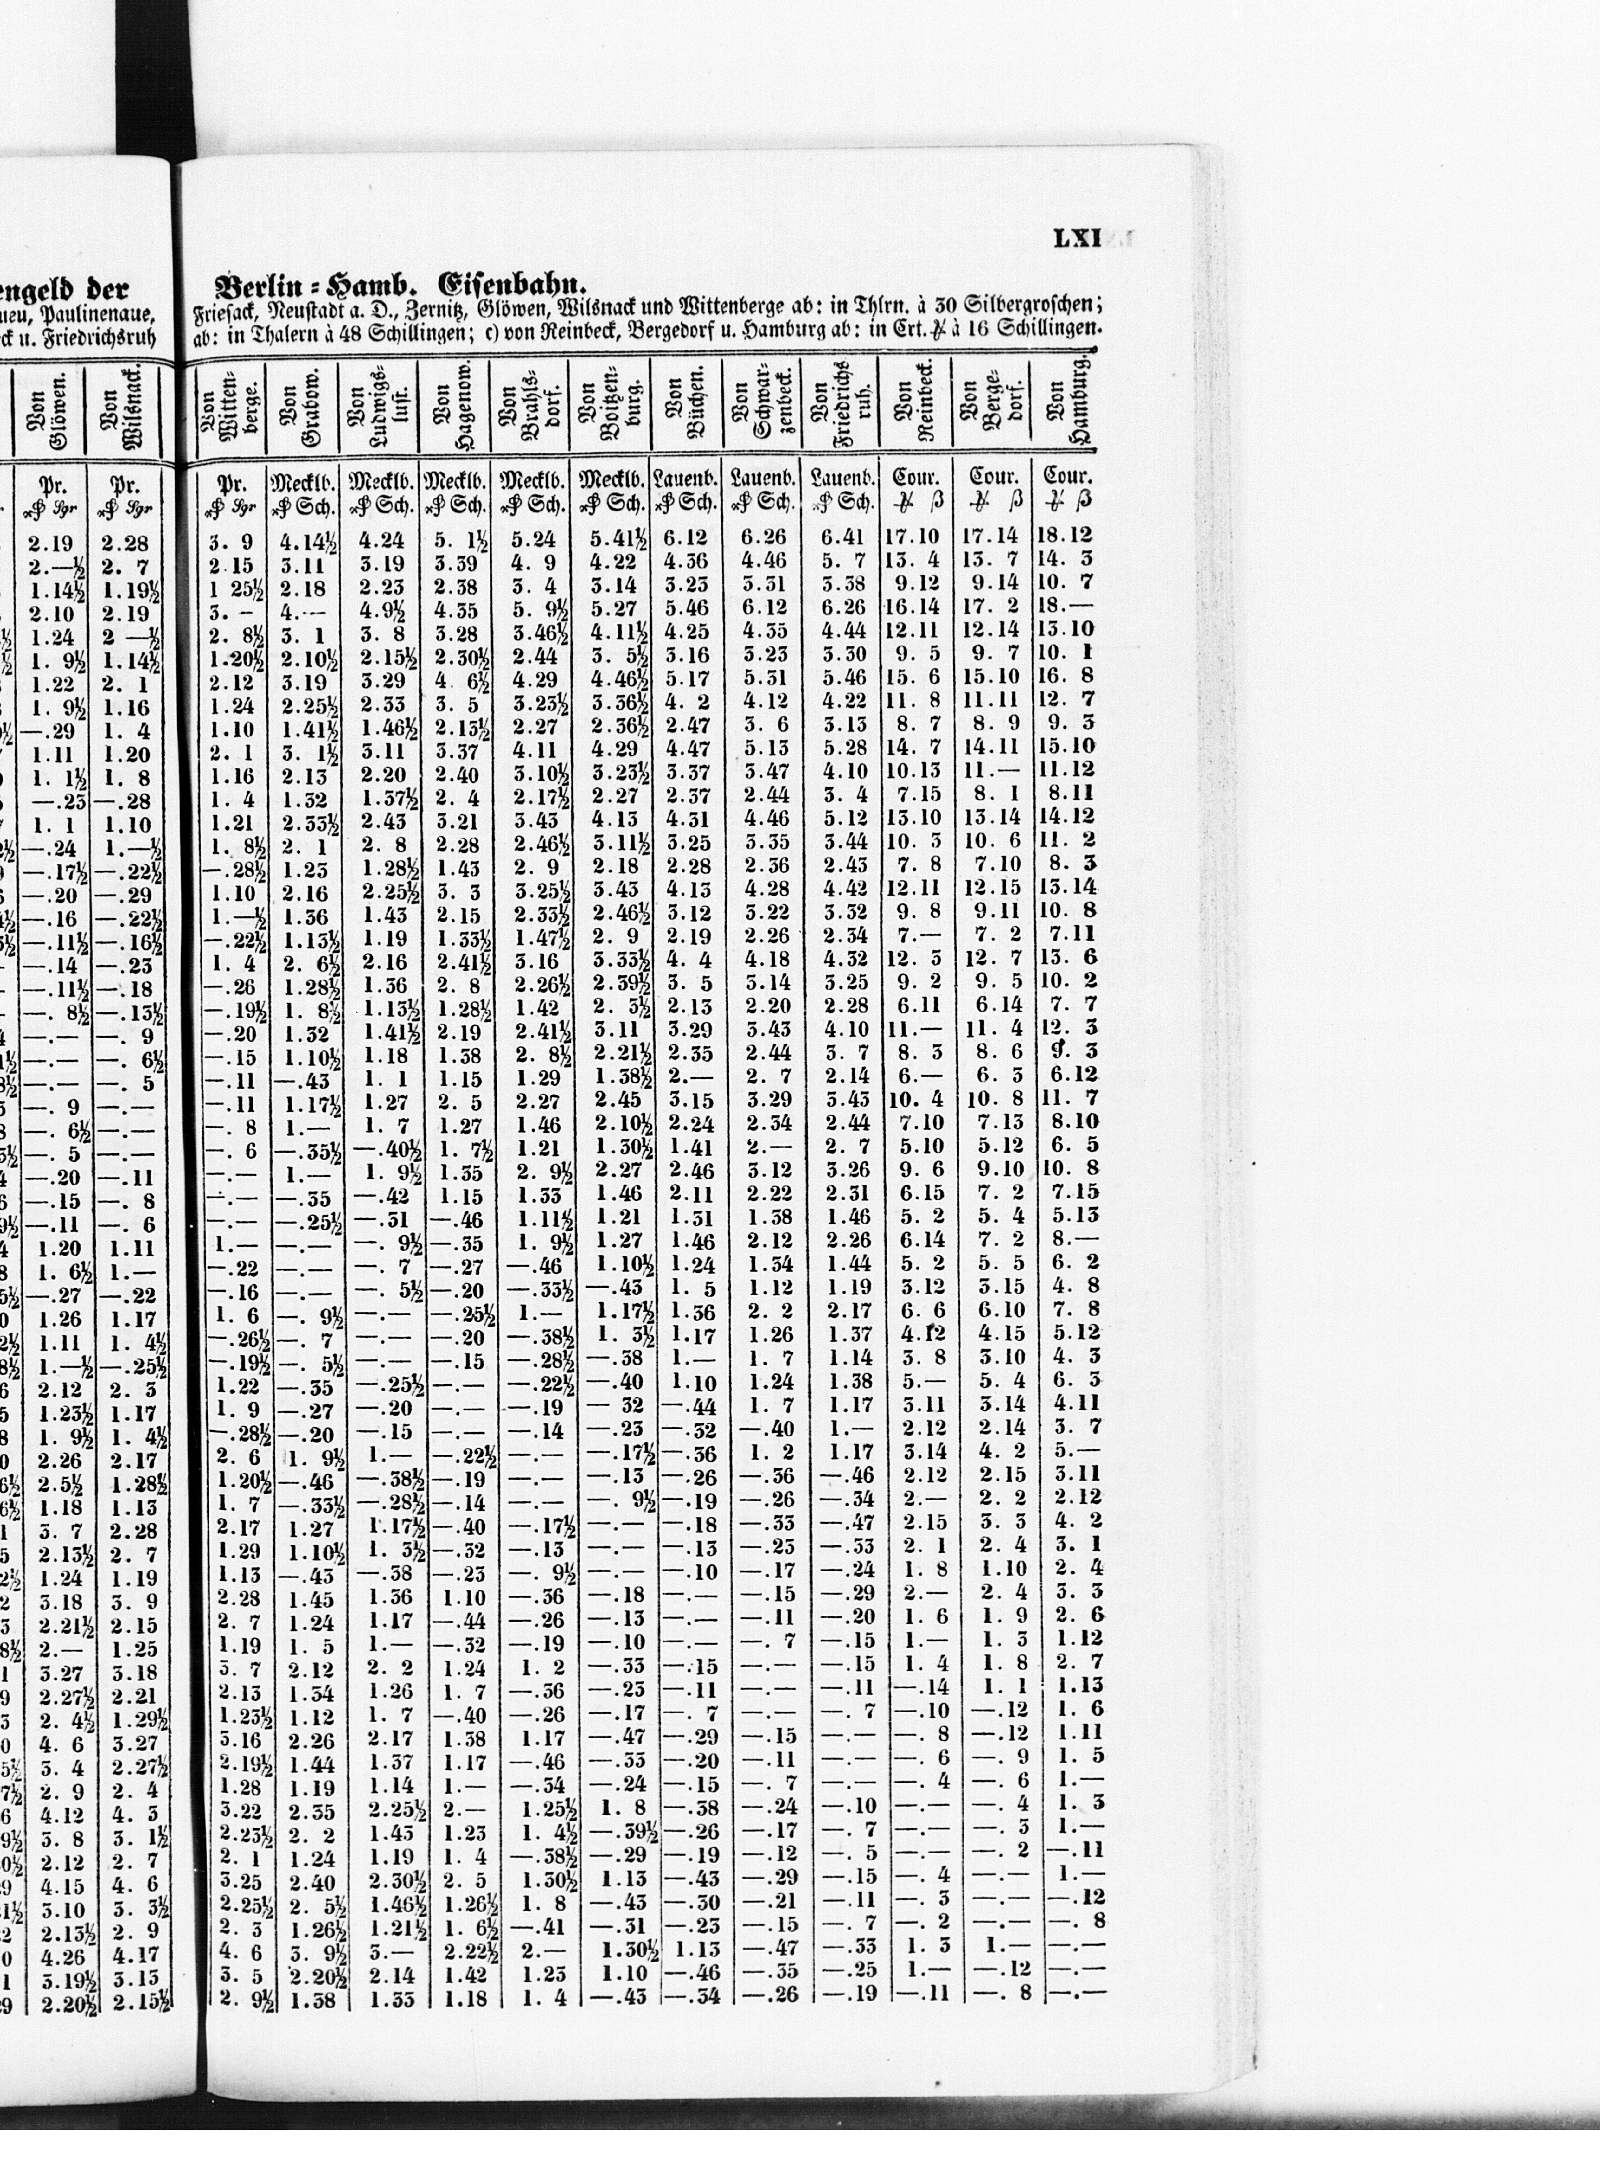 LXI
engeld der Berlin=Hamb. Eisenbahn.
ueu, Paulinenaue, Friesack, Neustadt a. D., Zernitz, Glöwen, Wilsnack und Wittenberge ab: in Thlrn. à 30 Silbergroschen;
ck u. Friedrichsruh ab: in Thalern à 48 Schillingen; c) von Reinbeck, Bergedorf u. Hamburg ab: in Crt.₰ à 16 Schillingen.
Von Glöwen. Von Wilsnack. Von Witten-berge. Von Grabow. Von Ludwigs-lust. Von Hagenow. Von Brahls-dorf. Von Boitzen-burg. Von Büchen. Von Schwar-zenbeck. Von Friedrichs ruh. Von Reinbeck. Von Berge-dorf. Von Hamburg.
Pr. Pr. Pr. Mecklb. Mecklb. Mecklb. Mecklb. Mecklb. Lauenb. Lauenb. Lauenb. Cour. Cour. Cour.
Sgr Sgr Sgr Sch. Sch. Sch. Sch. Sch. Sch. Sch. Sch. β β β
2.19 2.28 3. 9 4.14½ 4.24 5. 1½ 5.24 5.41½ 6.12 6.26 6.41 17.10 17.14 18.12
2.—½ 2. 7 2 15 3.11 3.19 3.39 4. 9 4.22 4.36 4.46 5. 7 13. 4 13. 7 14. 3
1.14½ 1.19½ 1 25½ 2.18 2.23 2.38 3. 4 3.14 3.23 3.31 3.38 9.12 9.14 10. 7
2.10 2.19 3. – 4.— 4.9½ 4.35 5. 9½ 5.27 5.46 6.12 6.26 16.14 17. 2 18.—
1.24 2 —½ 2. 8½ 3. 1 3. 8 3.28 3.46½ 4.11½ 4.25 4.35 4.44 12.11 12.14 13.10
1. 9½ 1.14½ 1.20½ 2.10½ 2.15½ 2.30½ 2.44 3. 5½ 3.16 3.23 3.30 9. 5 9. 7 10. 1
1.22 2. 1 2.12 3.19 3.29 4 6½ 4.29 4.46½ 5.17 5.31 5.46 15. 6 15.10 16. 8
1. 9½ 1.16 1.24 2.25½ 2.33 3. 5 3.23½ 3.36½ 4. 2 4.12 4.22 11. 8 11.11 12. 7
—.29 1. 4 1.10 1.41½ 1.46½ 2.13½ 2.27 2.36½ 2.47 3. 6 3.13 8. 7 8. 9 9. 3
1.11 1.20 2. 1 3. 1½ 3.11 3.37 4.11 4.29 4.47 5.13 5.28 14. 7 14.11 15.10
1. 1½ 1. 8 1.16 2.13 2.20 2.40 3.10½ 3.23½ 3.37 3.47 4.10 10.13 11.— 11.12
—.23 —.28 1. 4 1.32 1.37½ 2. 4 2.17½ 2.27 2.37 2.44 3. 4 7.15 8. 1 8.11
1. 1 1.10 1.21 2.33½ 2.43 3.21 3.43 4.13 4.31 4.46 5.12 13.10 13.14 14.12
—.24 1.—½ 1. 8½ 2. 1 2. 8 2.28 2.46½ 3.11½ 3.25 3.35 3.44 10. 3 10. 6 11. 2
—.17½ —.22½ —.28½ 1.23 1.28½ 1.43 2. 9 2.18 2.28 2.36 2.43 7. 8 7.10 8. 3
—.20 —.29 1.10 2.16 2.25½ 3. 3 3.25½ 3.43 4.13 4.28 4.42 12.11 12.15 13.14
—.16 —.22½ 1.—½ 1.36 1.43 2.15 2.33½ 2.46½ 3.12 3.22 3.32 9. 8 9.11 10. 8
—.11½ —.16½ —.22½ 1.13½ 1.19 1.33½ 1.47½ 2. 9 2.19 2.26 2.34 7.— 7. 2 7.11
—.14 —.23 1. 4 2. 6½ 2.16 2.41½ 3.16 3.33½ 4. 4 4.18 4.32 12. 3 12. 7 13. 6
—.11½ —.18 —.26 1.28½ 1.36 2. 8 2.26½ 2.39½ 3. 5 3.14 3.25 9. 2 9. 5 10. 2
—. 8½ —.13½ —.19½ 1. 8½ 1.13½ 1.28½ 1.42 2. 3½ 2.13 2.20 2.28 6.11 6.14 7. 7
—.— —. 9 —.20 1.32 1.41½ 2.19 2.41½ 3.11 3.29 3.43 4.10 11.— 11. 4 12. 3
—.— —. 6½ —.15 1.10½ 1.18 1.38 2. 8½ 2.21½ 2.35 2.44 3. 7 8. 3 8. 6 9. 3
—.— —. 5 —.11 —.43 1. 1 1.15 1.29 1.38½ 2.— 2. 7 2.14 6.— 6. 3 6.12
—. 9 —.— —.11 1.17½ 1.27 2. 5 2.27 2.45 3.15 3.29 3.43 10. 4 10. 8 11. 7
—. 6½ —.— —. 8 1.— 1. 7 1.27 1.46 2.10½ 2.24 2.34 2.44 7.10 7.13 8.10
—. 5 —.— —. 6 —.35½ —.40½ 1. 7½ 1.21 1.30½ 1.41 2.— 2. 7 5.10 5.12 6. 5
—.20 —.11 —.— 1.— 1. 9½ 1.35 2. 9½ 2.27 2.46 3.12 3.26 9. 6 9.10 10. 8
—.15 —. 8 —.— —.35 —.42 1.15 1.33 1.46 2.11 2.22 2.31 6.15 7. 2 7.15
—.11 —. 6 —.— —.25½ —.31 —.46 1.11½ 1.21 1.31 1.38 1.46 5. 2 5. 4 5.13
1.20 1.11 1.— —.— —. 9½ —.35 1. 9½ 1.27 1.46 2.12 2.26 6.14 7. 2 8.—
1. 6½ 1.— —.22 —.— —. 7 —.27 —.46 1.10½ 1.24 1.34 1.44 5. 2 5. 5 6. 2
—.27 —.22 —.16 —.— —. 5½ —.20 —.33½ —.43 1. 5 1.12 1.19 3.12 3.15 4. 8
1.26 1.17 1. 6 —. 9½ —.— —.25½ 1.— 1.17½ 1.36 2. 2 2.17 6. 6 6.10 7. 8
1.11 1. 4½ —.26½ —. 7 —.— —.20 —.38½ 1. 3½ 1.17 1.26 1.37 4.12 4.15 5.12
1.—½ —.25½ —.19½ —. 5½ —.— —.15 —.28½ —.38 1.— 1. 7 1.14 3. 8 3.10 4. 3
2.12 2. 3 1.22 —.35 —.25½ —.— —.22½ —.40 1.10 1.24 1.38 5.— 5. 4 6. 3
1.23½ 1.17 1. 9 —.27 —.20 —.— —.19 — 32 —.44 1. 7 1.17 3.11 3.14 4.11
1. 9½ 1. 4½ —.28½ —.20 —.15 —.— —.14 —.23 —.32 —.40 1.— 2.12 2.14 3. 7
2.26 2.17 2. 6 1. 9½ 1.— —.22½ —.— —.17½ —.36 1. 2 1.17 3.14 4. 2 5.—
2.5½ 1.28½ 1.20½ —.46 —.38½ —.19 —.— —.13 —.26 —.36 —.46 2.12 2.15 3.11
1.18 1.13 1. 7 —.33½ —.28½ —.14 —.— —. 9½ —.19 —.26 —.34 2.— 2. 2 2.12
3. 7 2.28 2.17 1.27 1.17½ —.40 —.17½ —.— —.18 —.33 —.47 2.15 3. 3 4. 2
2.13½ 2. 7 1.29 1.10½ 1. 3½ —.32 —.13 —.— —.13 —.23 —.33 2. 1 2. 4 3. 1
1.24 1.19 1.13 —.43 —.38 —.23 —. 9½ —.— —.10 —.17 —.24 1. 8 1.10 2. 4
3.18 3. 9 2.28 1.45 1.36 1.10 —.36 —.18 —.— —.15 —.29 2.— 2. 4 3. 3
2.21½ 2.15 2. 7 1.24 1.17 —.44 —.26 —.13 —.— —.11 —.20 1. 6 1. 9 2. 6
2.— 1.25 1.19 1. 5 1.— —.32 —.19 —.10 —.— —. 7 —.15 1.— 1. 3 1.12
3.27 3.18 3. 7 2.12 2. 2 1.24 1. 2 —.33 —.15 —.— —.15 1. 4 1. 8 2. 7
2.27½ 2.21 2.13 1.34 1.26 1. 7 —.36 —.23 —.11 —.— —.11 —.14 1. 1 1.13
2. 4½ 1.29½ 1.23½ 1.12 1. 7 —.40 —.26 —.17 —. 7 —.— —. 7 —.10 —.12 1. 6
4. 6 3.27 3.16 2.26 2.17 1.38 1.17 —.47 —.29 —.15 —.— —. 8 —.12 1.11
3. 4 2.27½ 2.19½ 1.44 1.37 1.17 —.46 —.33 —.20 —.11 —.— —. 6 —. 9 1. 5
2. 9 2. 4 1.28 1.19 1.14 1.— —.34 —.24 —.15 —. 7 —.— —. 4 —. 6 1.—
4.12 4. 3 3.22 2.35 2.25½ 2.— 1.25½ 1. 8 —.38 —.24 —.10 —.— —. 4 1. 3
3. 8 3. 1½ 2.23½ 2. 2 1.43 1.23 1. 4½ —.39½ —.26 —.17 —. 7 —.— —. 3 1.—
2.12 2. 7 2. 1 1.24 1.19 1. 4 —.38½ —.29 —.19 —.12 —. 5 —.— —. 2 —.11
4.15 4. 6 3.25 2.40 2.30½ 2. 5 1.30½ 1.13 —.43 —.29 —.15 —. 4 —.— 1.—
3.10 3. 3½ 2.25½ 2. 5½ 1.46½ 1.26½ 1. 8 —.43 —.30 —.21 —.11 —. 3 —.— —.12
2.13½ 2. 9 2. 3 1.26½ 1.21½ 1. 6½ —.41 —.31 —.23 —.15 —. 7 —. 2 —.— —. 8
4.26 4.17 4. 6 3. 9½ 3.— 2.22½ 2.— 1.30½ 1.13 —.47 —.33 1. 3 1.— —.—
3.19½ 3.13 3. 5 2.20½ 2.14 1.42 1.23 1.10 —.46 —.35 —.25 1.— —.12 —.—
2.20½ 2.15½ 2. 9½ 1.38 1.33 1.18 1. 4 —.43 —.34 —.26 —.19 —.11 —. 8 —.—